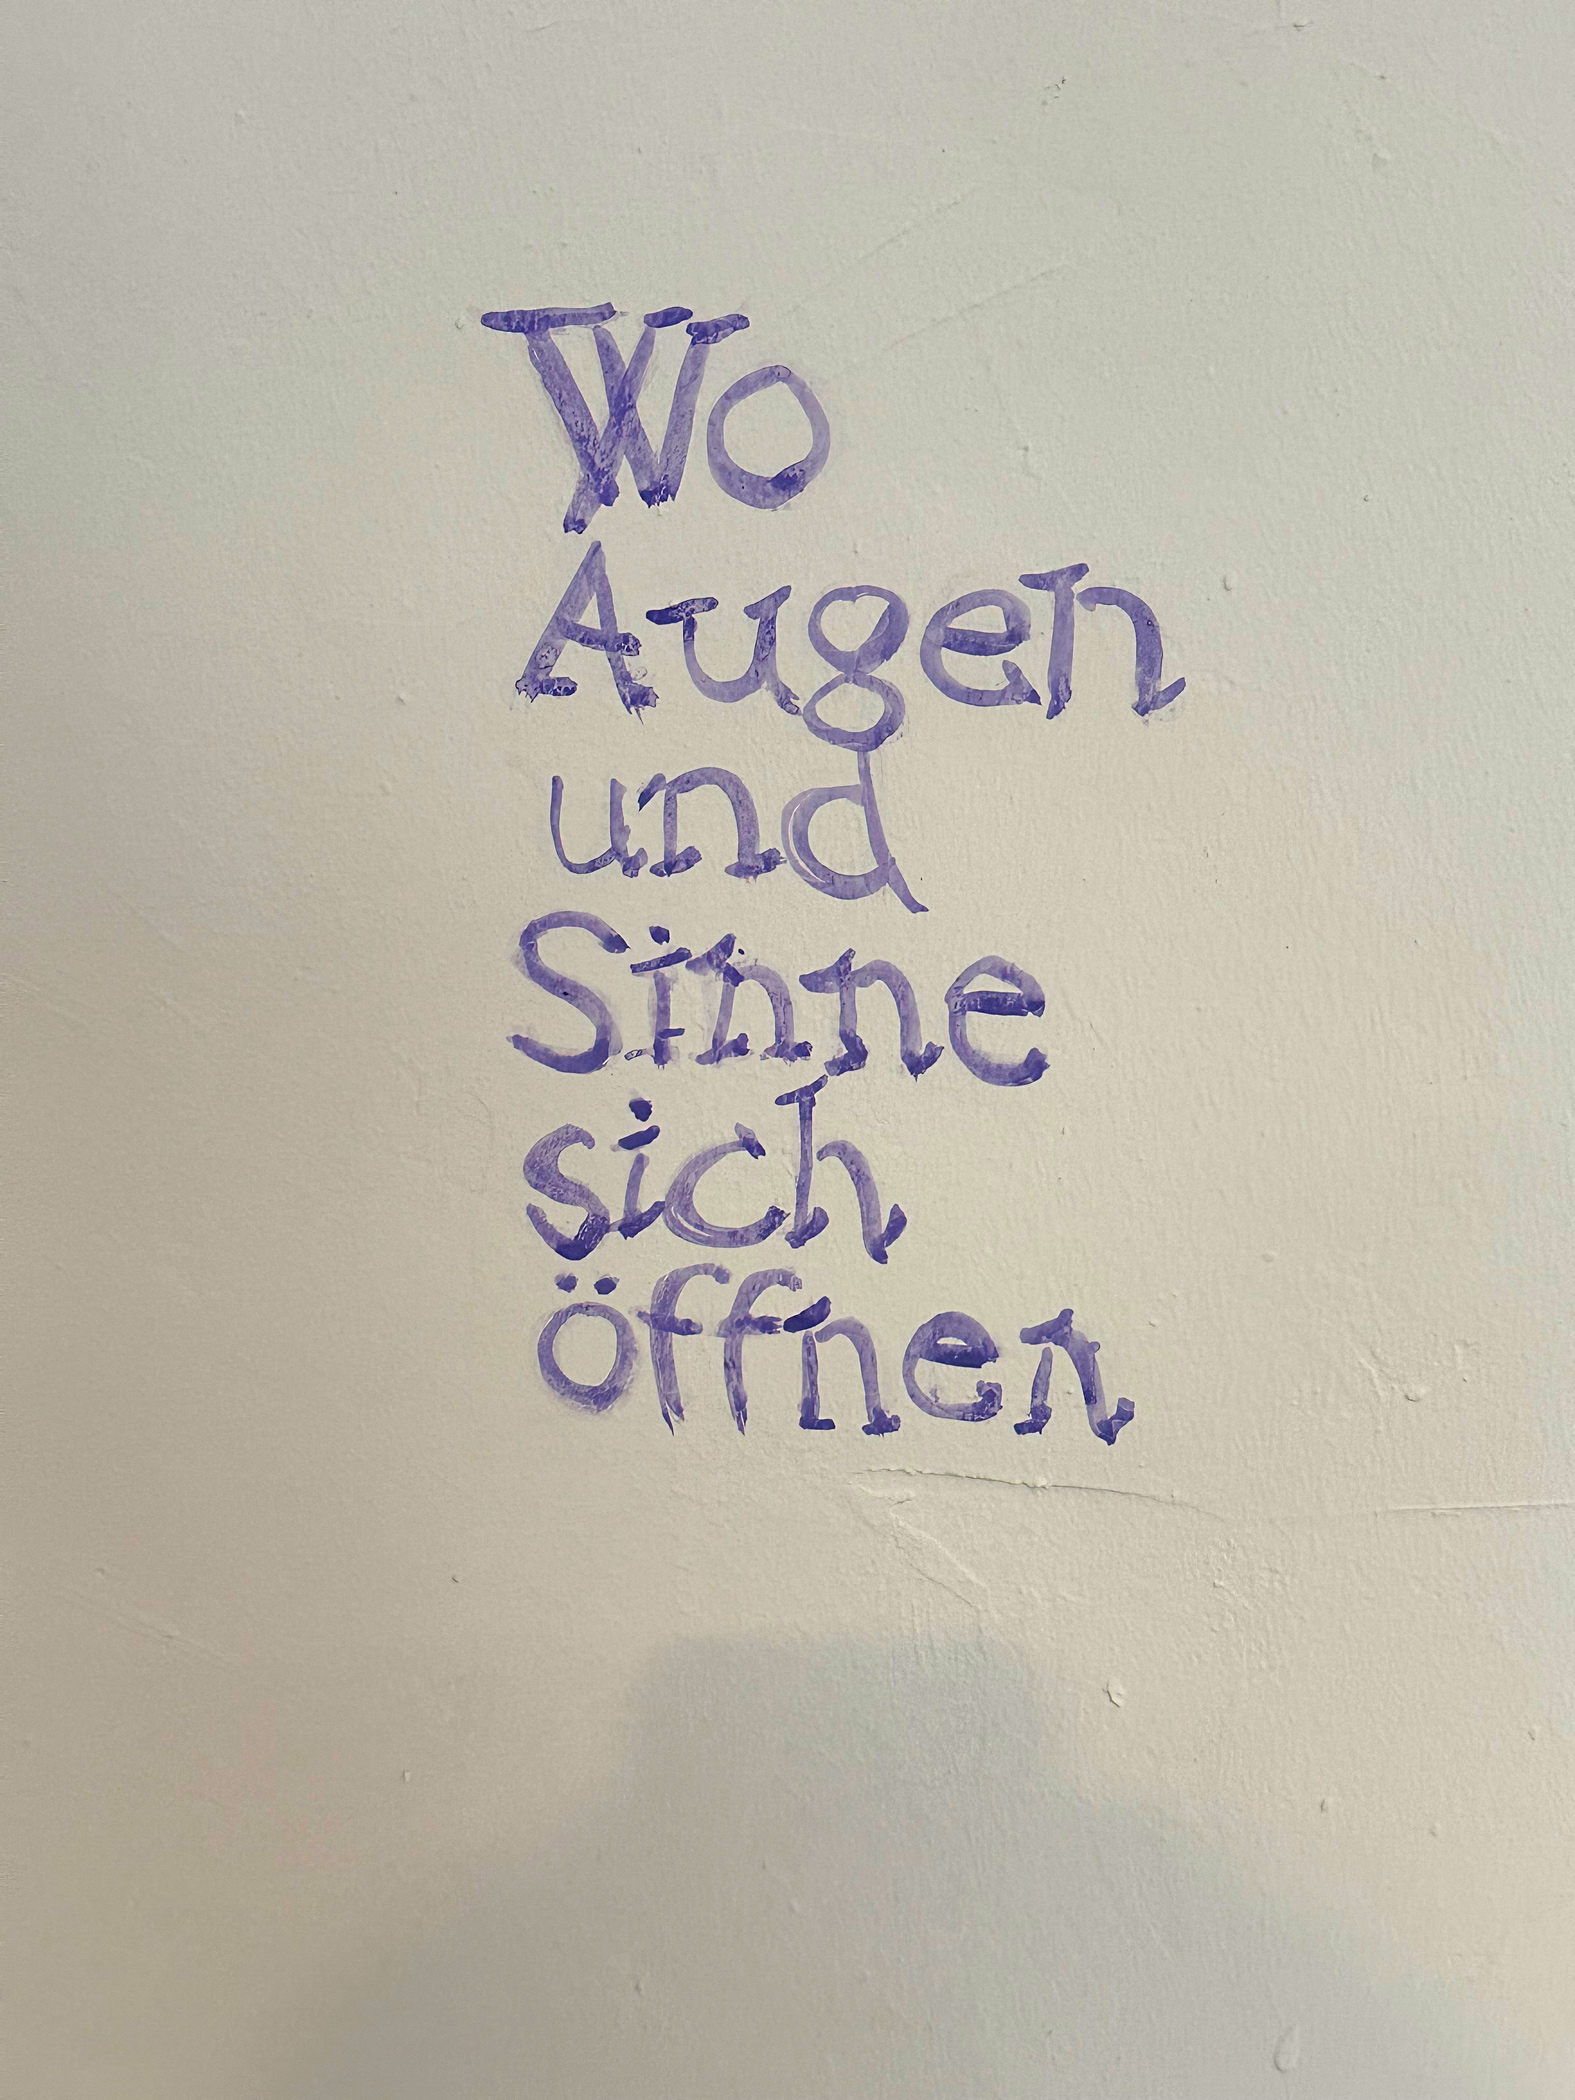 Wo
Augen
und
Sinne
sich
öffnen